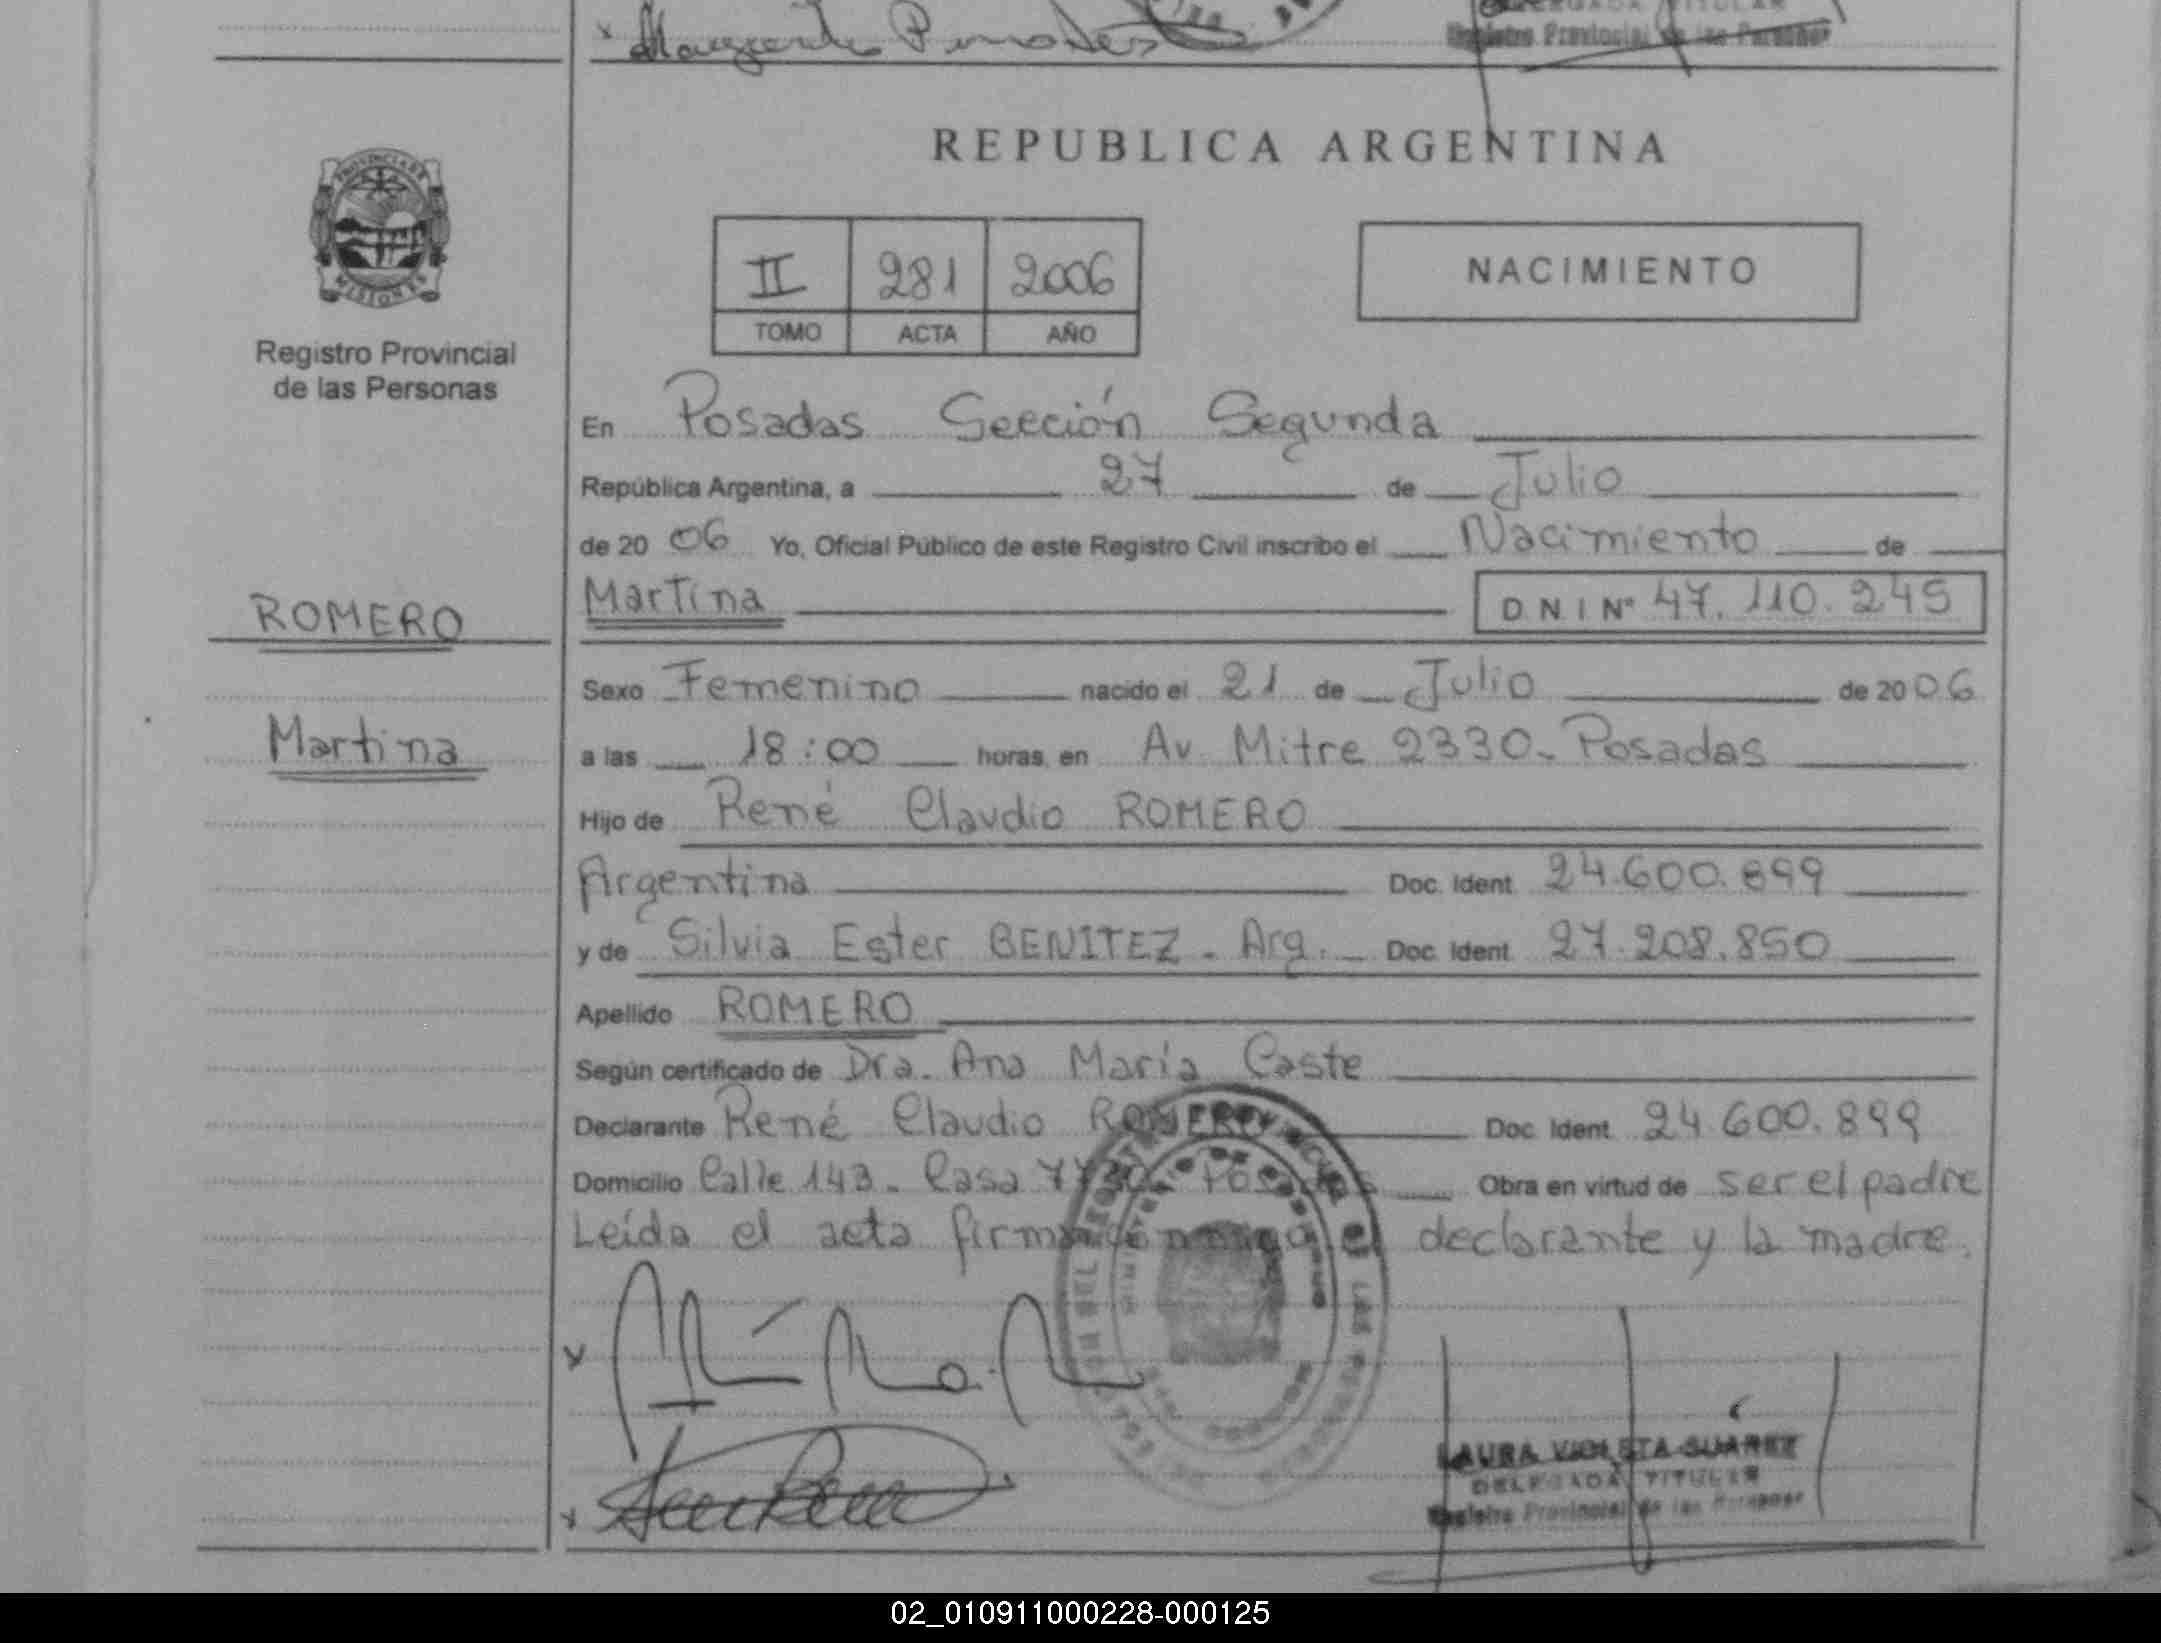 REPUBLICA ARGENTINA
PROVINCIA DE
MISIONES
Registro Provincial
de las Personas
II 281 2006
TOMO ACTA AÑO
NACIMIENTO
En Posadas Sección Segunda
República Argentina, a 27 de Julio
de 20 06 Yo, Oficial Público de este Registro Civil inscribo el Nacimiento de
ROMERO
Martina D.N.I Nº 47.110.245
Sexo Femenino nacido el 21 de Julio de 20 06
Martina
a las 18:00 horas, en Av. Mitre 2330- Posadas
Hijo de René Claudio ROMERO
Argentina Doc. Ident. 24.600.899
y de Silvia Ester BENITEZ - Arg. Doc. Ident. 27.208.850
Apellido ROMERO
Según certificado de Dra. Ana María Caste
Declarante René Claudio ROMERO Doc. Ident. 24.600.899
Domicilio Calle 143 - Casa 7730 - Posadas Obra en virtud de ser el padre
Leída el acta firma conmigo el declarante y la madre.
LAURA VIOLETA SUAREZ
DELEGADA TITULAR
Registro Provincial de las Personas
02_010911000228-000125